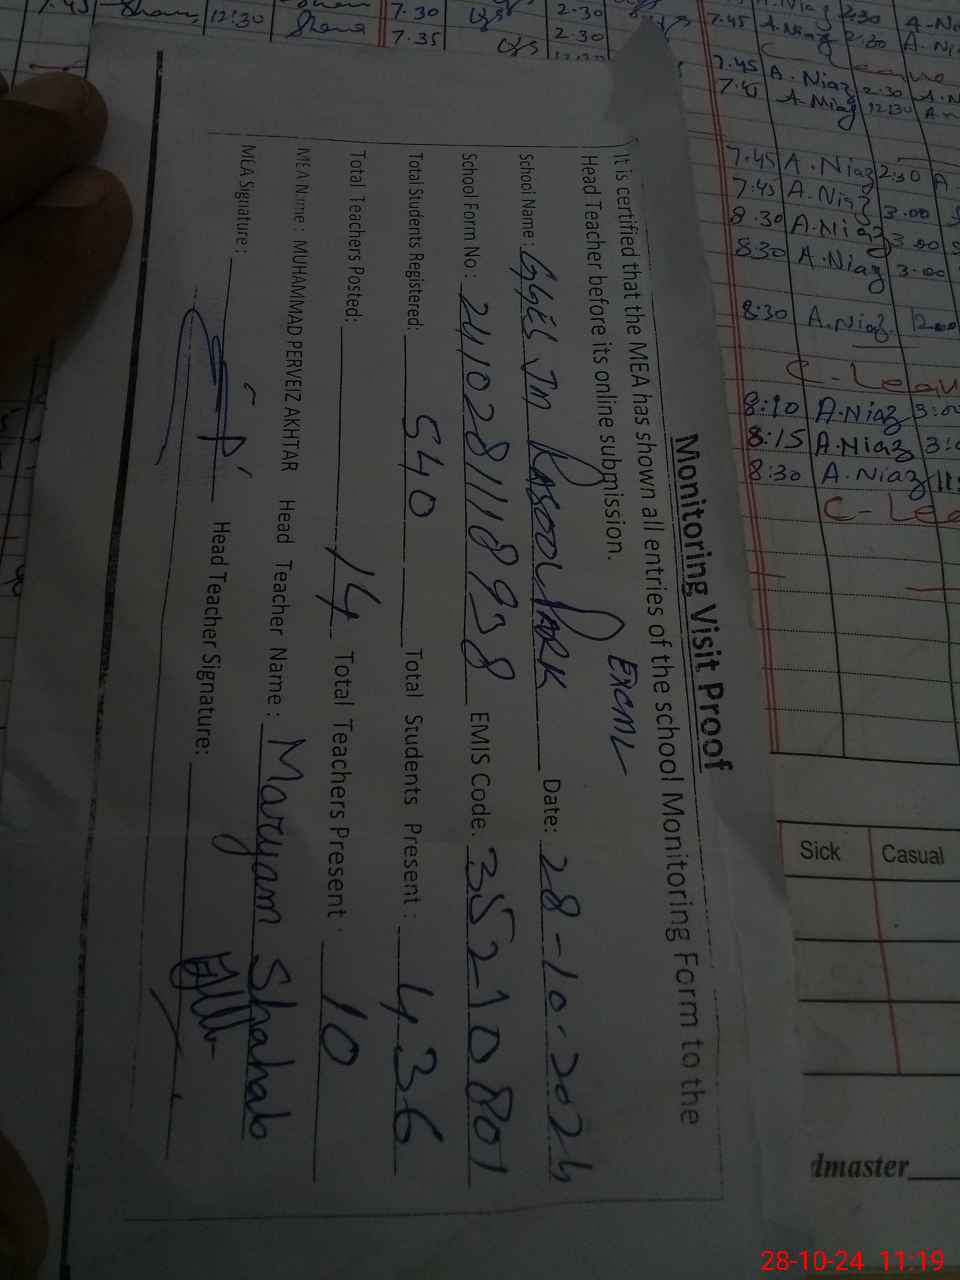 Monitoring Visit Proof
It is certified that the MEA has shown all entries of the school Monitoring Form to the
Head Teacher before its online submission.
School Name: GGES Jm RASOOL PARK Date: 28-10-2024
School Form No: 2410281118938 EMIS Code: 35210801
Total Students Registered: 540 Total Students Present: 436
Total Teachers Posted: 14 Total Teachers Present: 10
MEA Name: MUHAMMAD PERVEIZ AKHTAR Head Teacher Name: Maryam Shahab
MEA Signature: Head Teacher Signature:
12:30 7.30 2.30
7.35 2.30
7.45 A.Niaz 2:30
7.45 A.Niaz 2.30
7.45 A.Niaz 12:30
7.45 A.Niaz 2:30 A
7.45 A.Niaz 3.00
8.30 A.Niaz 3.00
8:30 A.Niaz 3.00
8:30 A.Niaz 12.00
C-Leav
8:10 A.Niaz 3:00
8:15 A.Niaz
8:30 A.Niaz
C-Lea
Sick Casual
dmaster
28-10-24 11:19